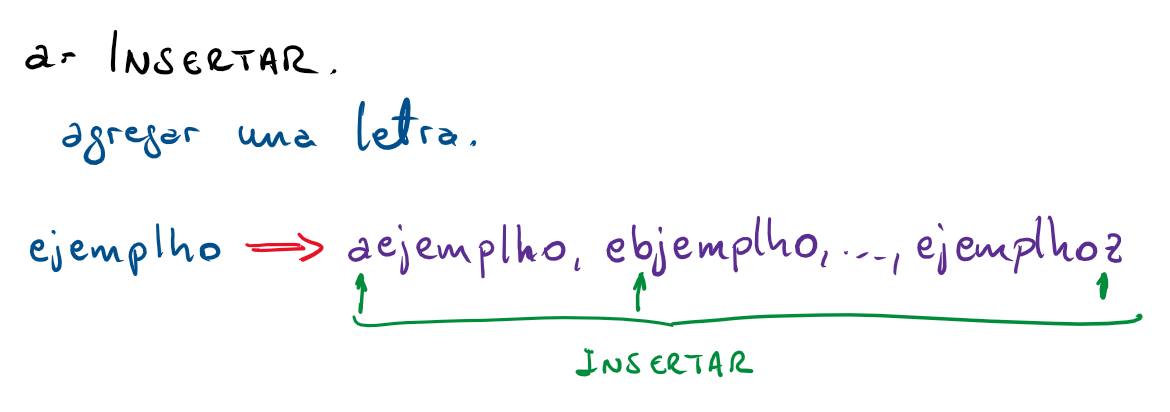 a- INSERTAR.
agregar una letra.
ejemplho ⇒ aejemplho, ebjemplho, ..., ejemplhoz
INSERTAR